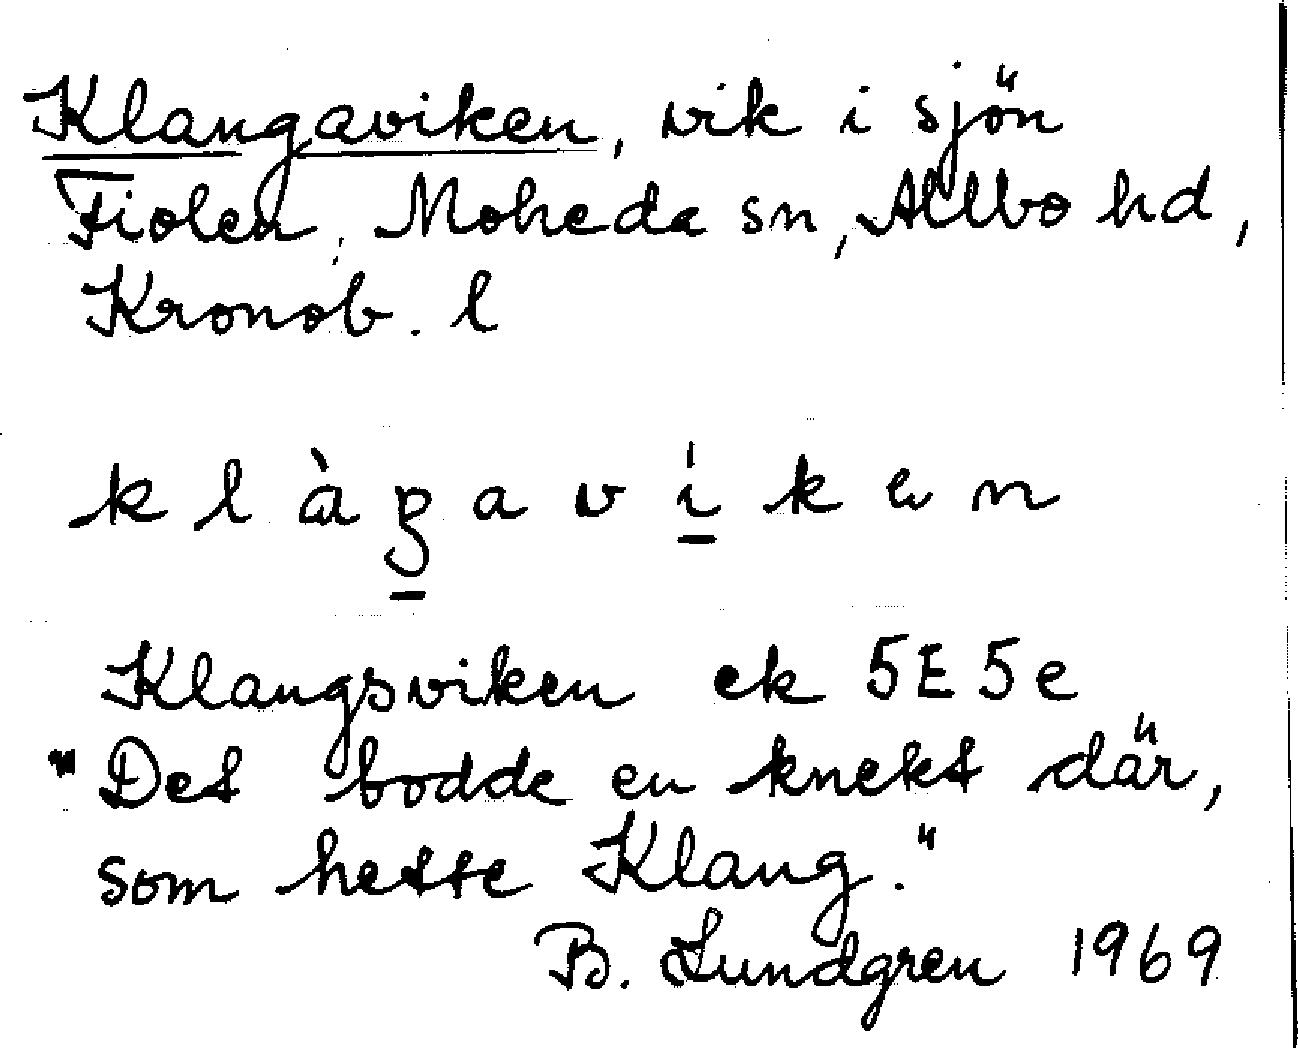 Klangaviken, vik i sjön
Fiolen, Moheda sn, Allbo hd,
Kronob. l
k l à g a v í k e n
Klangsviken ek 5E5e
"Det bodde en knekt där,
som hette Klang."
B. Lundgren 1969